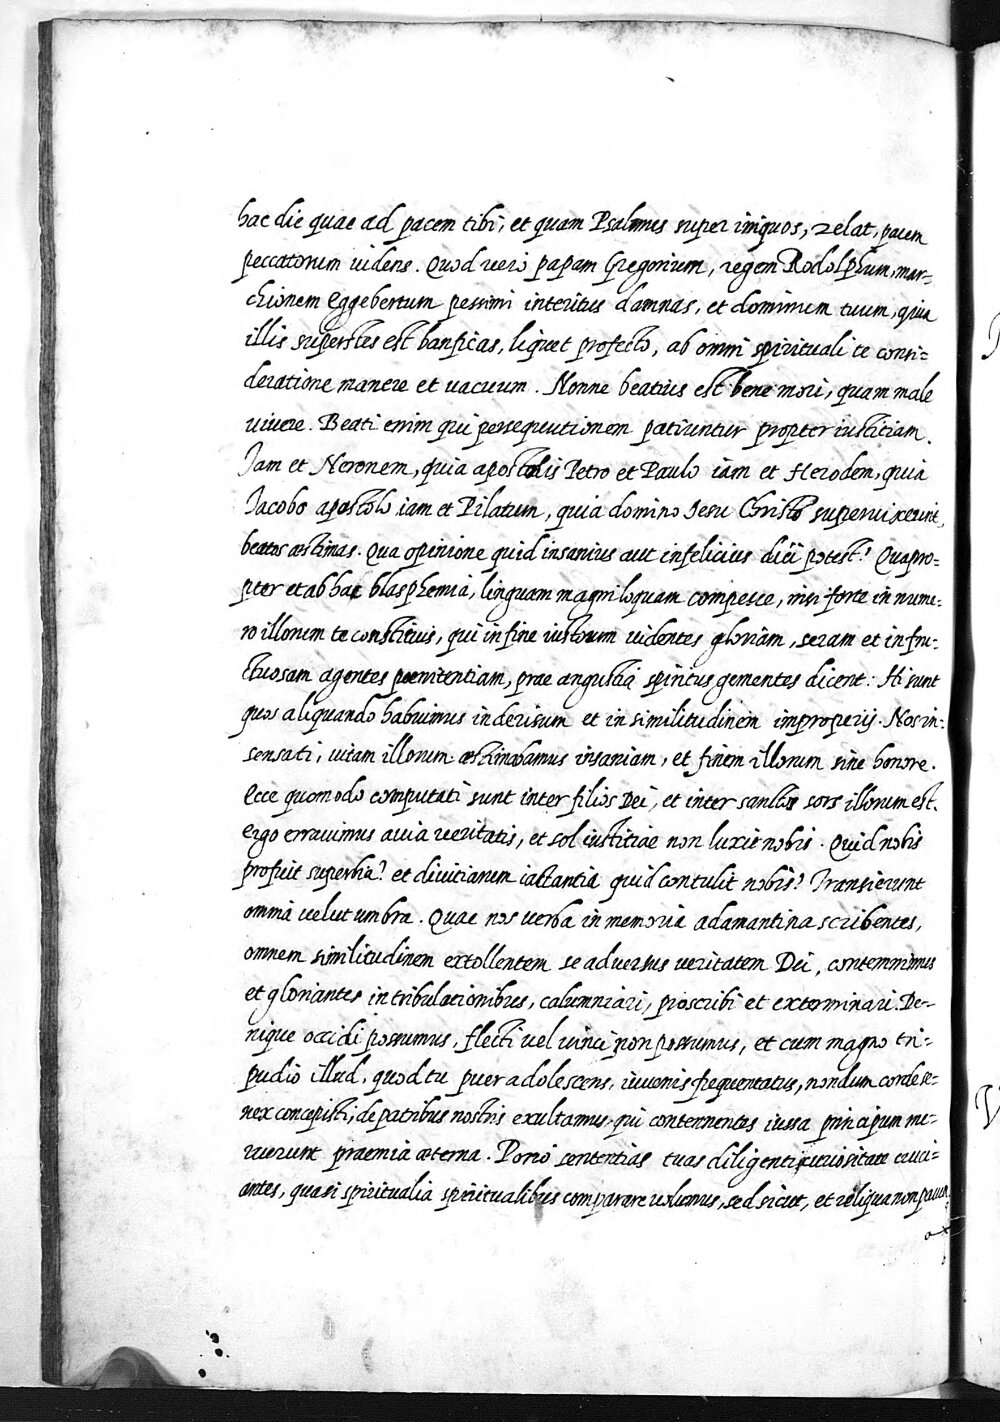 hac die quae ad pacem tibi, et quam Psalmus super iniquos, zelat, pacem
peccatorum videns. Quod vero papam Gregorium, regem Rodolphum, mar=
chionem Eggebertum pessimi interitus damnas, et dominum tuum, quia
illis superstes est banficas, liquet profecto, ab omni spirituali te consi=
deratione manere et vacuum. Nonne beatius est bene mori, quam male
vivere. Beati enim qui persequutionem patiuntur propter iustitiam.
Jam et Neronem, quia apostolis Petro et Paulo iam et Herodem, quia
Jacobo apostolo iam et Pilatum, quia domino Jesu Christo supervixerunt,
beatos æstimas. Qua opinione quid insanius aut infelicius dici potest? Quapro=
pter et ab hac blasphemia, linguam magniloquam compesce, nisi forte in nume=
ro illorum te constituis, qui in fine iustorum videntes gloriam, seram et infru=
ctuosam agentes poenitentiam, prae angustia spiritus gementes dicent: Hi sunt
quos aliquando habuimus in derisum et in similitudinem improperij. Nos in=
sensati, vitam illorum æstimabamus insaniam, et finem illorum sine honore.
Ecce quomodo computati sunt inter filios Dei, et inter sanctos sors illorum est.
Ergo erravimus a via veritatis, et sol iustitiae non luxit nobis. Quid nobis
profuit superbia? et divitiarum iactantia quid contulit nobis? Transierunt
omnia velut umbra. Quae nos verba in memoria adamantina scribentes,
omnem similitudinem extollentem se adversus veritatem Dei, contemnimus
et gloriantes in tribulationibus, calumniari, proscribi et exterminari. De=
nique occidi possumus, flecti vel vinci non possumus, et cum magno tri=
pudio illud, quod tu puer adolescens, iuvenis frequentatus, nondum corde se=
nex concepisti, de patribus nostris exultamus, qui contemnentes iussa principum me=
ruerunt praemia æterna. Porro sententias tuas diligenti curiositate cruci=
antes, quasi spiritualia spiritualibus comparare volumus, sed sicut, et reliqua non